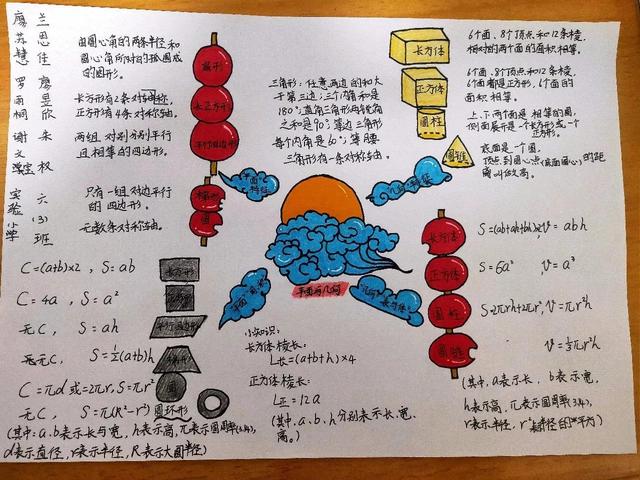 廖 兰
苏 思
慧 佳
罗 廖
雨 昱
桐 欣
谢 宋
文 权
实 六
验 (3)
小 班
学
由圆心角的两条半径和
圆心角所对的弧围成
的图形。
长方形有2条对称轴,
正方形有4条对称轴。
两组对别分别平行
且相等的四边形。
只有一组对边平行
的四边形。
无数条对称轴。
扇形
长正方形
平行四边形
梯形
圆
平面特征
三角形:任意两边的和大
于第三边;三个内角和是
180°;直角三角形两锐角
之和是90°;等边三角形
每个内角是60°;等腰
三角形有一条对称轴。
长方体
正方体
圆柱
圆锥
6个面、8个顶点和12条棱,
相对的两个面的面积相等。
6个面、8个顶点和12条棱,
6个面都是正方形,6个面的
面积相等。
上、下两个面是相等的圆,
侧面展开是一个长方形或一个
正方形。
底面是一个圆。
顶点到圆心点(底面圆心)的距
离叫做高。
几何特征
平面与几何
C=(a+b)×2, S=ab
长方形
C=4a, S=a²
无C, S=ah
平行四边形
无C, S=½(a+b)h
C=πd或=2πr, S=πr²
圆
无C, S=π(R²-r²) 圆环形
(其中,a、b表示长与宽,h表示高,π表示圆周率(3.14),
d表示直径,r表示半径,R表示大圆半径)
小知识:
长方体棱长:
L长=(a+b+h)×4
正方体棱长:
L正=12a
(其中,a、b、h分别表示长、宽、
高。)
长方体
S=(ab+ah+bh)×2 V=abh
正方体
S=6a² V=a³
圆柱
S=2πrh+2πr², V=πr²h
圆锥
V=⅓πr²h
(其中,a表示长,b表示宽,
h表示高,π表示圆周率(3.14),